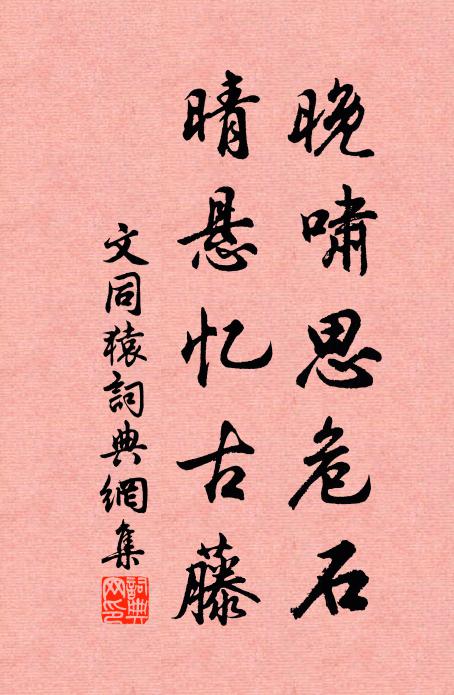 晚啸思危石
晴悬忆古藤
文同猿詞典網集
詞典网印